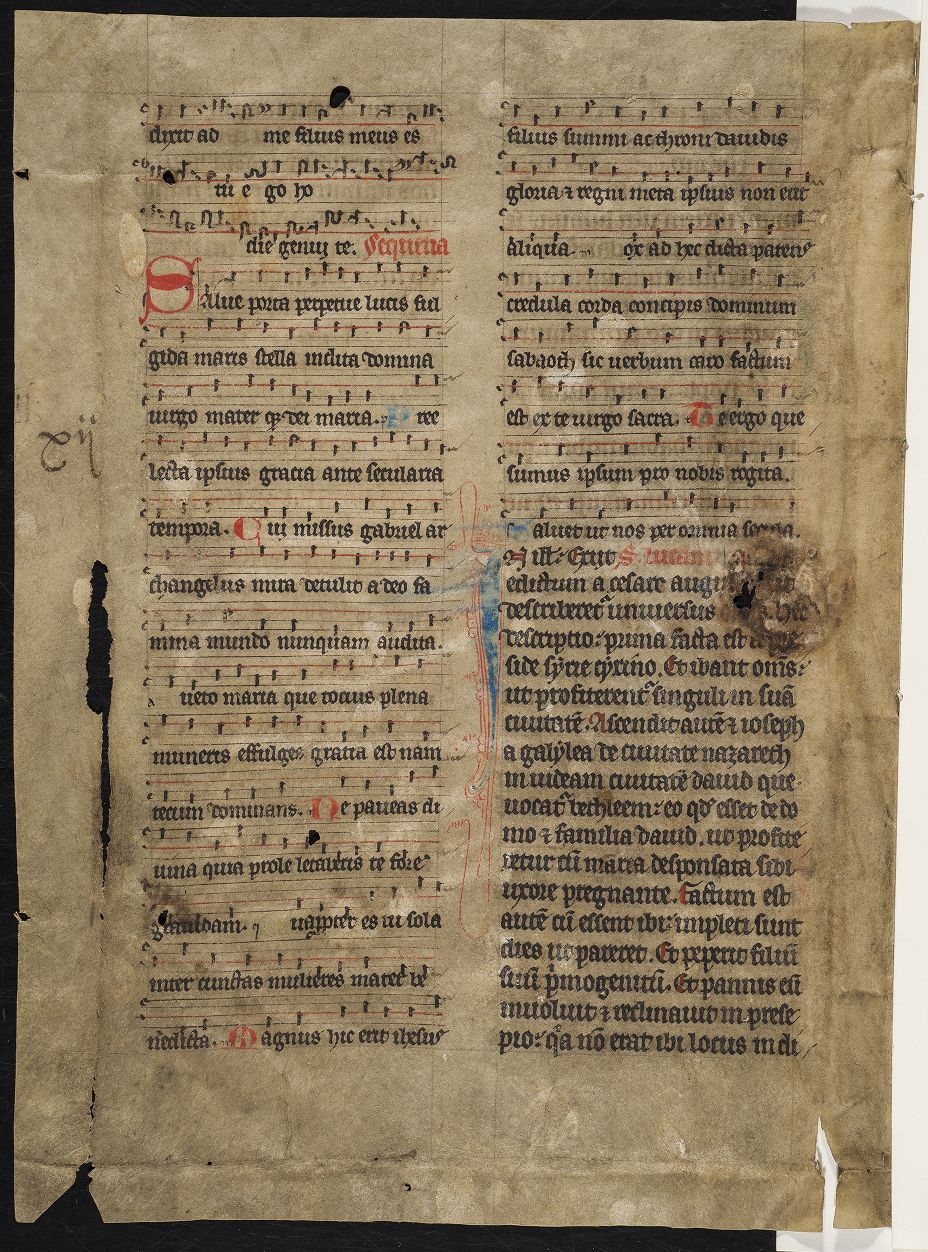 dixit ad me filius meus es
tu e go ho
die genui te. Sequencia
Salue porta perpetue lucis ful
gida maris stella inclita domina
uirgo mater qz dei maria. P ree
lecta ipsius gracia ante secularia
tempora. C ui missus gabriel ar
changelus mira detulit a deo fa
mina mundo nunquam audita.
uero maria que tocius plena
muneris effulges gratia est nam
tecum dominans. N e paueas di
uina quia prole letaberis te fore
grauidam. uappter es tu sola
inter cunctas mulieres mater be
nedicta. M agnus hic erit ihesus
xij
filius summi ac throni dauidis
gloria ⁊ regni meta ipsius non erit
aliqua. ox ad hec dicta patens
credula corda concipis dominum
sabaoth sic uerbum caro factum
est ex te uirgo sacra. T e ergo que
sumus ipsum pro nobis rogita.
S aluet ut nos per omnia
In ill: Exiit S. lucam
edictum a cesare augu
describeret᷑ uniuersus hec
descriptio: prima facta est
side syrie cyrino. Et ibant om̄s:
ut profiterent᷑ singuli in suā
ciuitatē. Ascendit autē ⁊ ioseph
a galylea de ciuitate nazareth
in iudeam ciuitatē dauid que
uocat᷑ bethleem: eo qd̄ esset de do
mo ⁊ familia dauid. ut profite
retur cū maria desponsata sibi
uxore pregnante. Factum est
autē cū essent ibi: impleti sunt
dies ut pareret. Et peperit filiū
suū p̄mogenitū. Et pannis eū
inuoluit ⁊ reclinauit in prese
pio: qa nō erat ibi locus in di